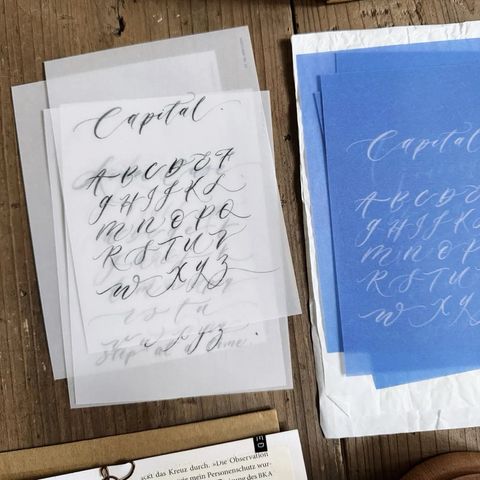 Capital.
A B C D E F
G H I J K L
M N O P Q
R S T U V
W X Y Z
step at a time.
Capital
A B C D E
G H I J K
M N O P
R S T U
W X Y
das Kreuz durch. »Die Observation
mein Personenschutz wur-
des BKA